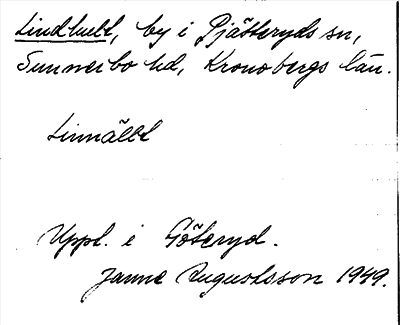 Lindhult, by i Pjätteryds sn,
Sunnerbo hd, Kronobergs län.
Linnält
Uppl. i Göteryd.
Janne Augustsson 1949.